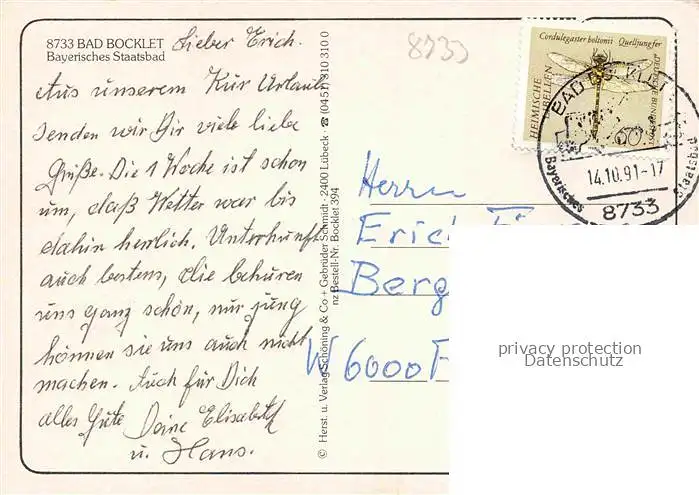 8733 BAD BOCKLET
Bayerisches Staatsbad
Lieber Erich.
Aus unserem Kur Urlaub
senden wir Dir viele liebe
Grüße. Die 1 Woche ist schon
um, daß Wetter war bis
dahin herlich. Unterkunft
auch bestens, die
uns ganz schön, nur jung
können sie uns auch nicht
machen. Auch für Dich
alles Gute Deine Elisabeth
u. Hans.
© Herst. u. Verlag Schöning & Co + Gebrüder Schmidt · 2400 Lübeck · ☎ (0451) 310 310 0
nz Bestell-Nr. Bocklet 394
8733
Cordulegaster boltonii Quelljungfer
HEIMISCHE
LIBELLEN
DEUTSCHE BUNDESPOST
60
BAD BOCKLET
Bayerisches Staatsbad
14.10.91-17
8733
Herrn
Erich
Berg
W 6000 F
privacy protection
Datenschutz